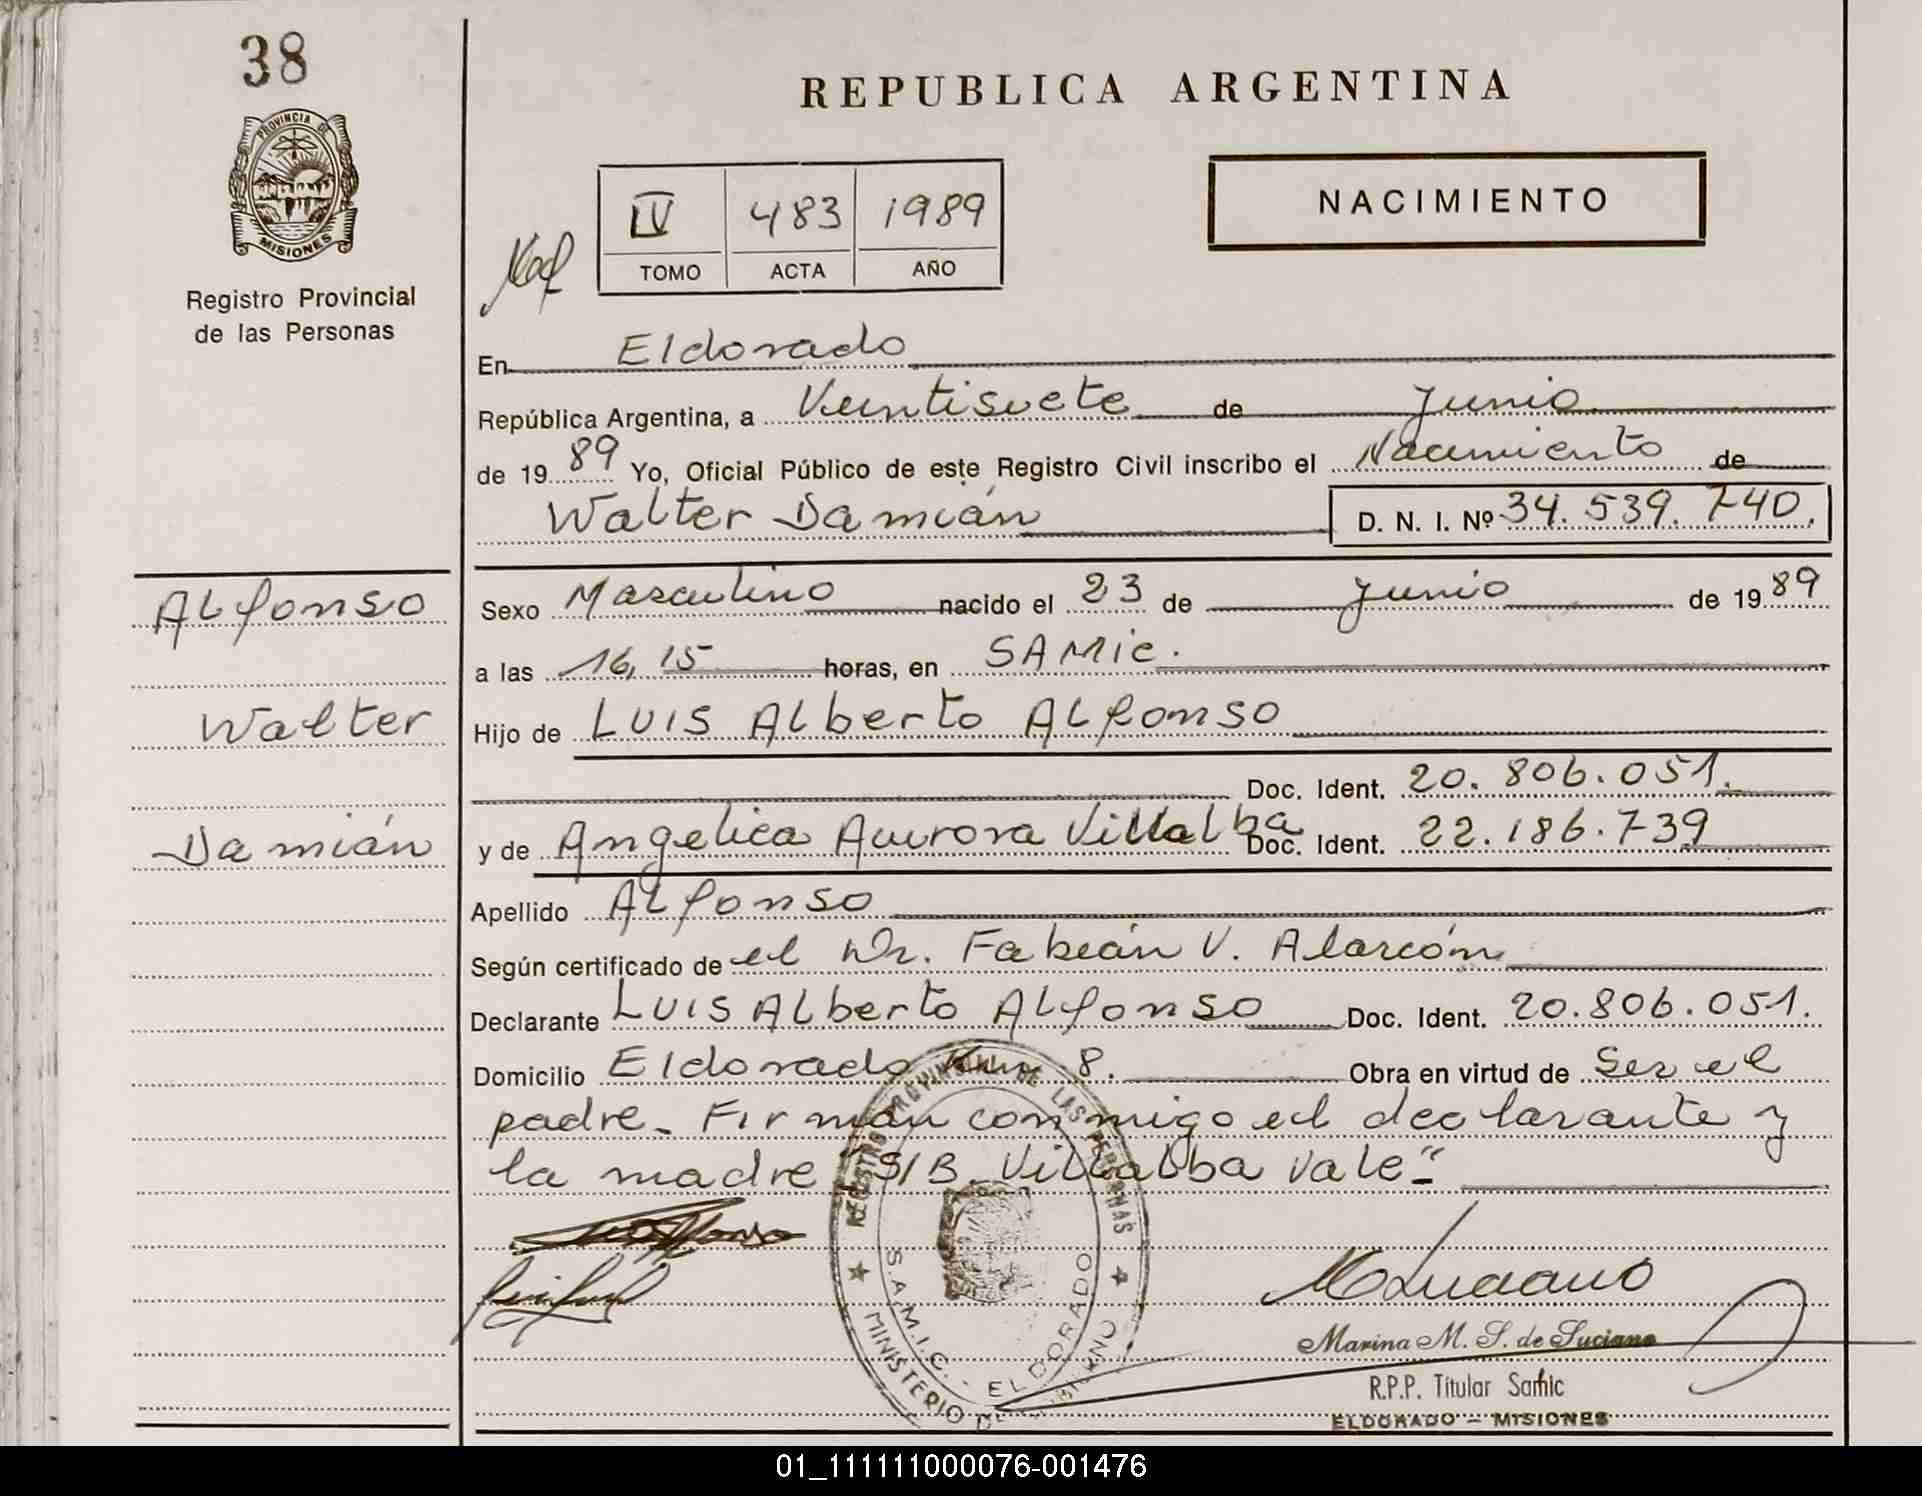 38
PROVINCIA DE
MISIONES
Registro Provincial
de las Personas
REPUBLICA ARGENTINA
NACIMIENTO
IV 483 1989
TOMO ACTA AÑO
En Eldorado
República Argentina, a Veintisiete de Junio
de 1989 Yo, Oficial Público de este Registro Civil inscribo el Nacimiento de
Walter Damián D. N. I. Nº 34.539.740.
Alfonso
Walter
Damián
Sexo Masculino nacido el 23 de Junio de 1989
a las 16,15 horas, en SAMic.
Hijo de Luis Alberto Alfonso
Doc. Ident. 20.806.051.
y de Angelica Aurora Villalba Doc. Ident. 22.186.739
Apellido Alfonso
Según certificado de el Dr. Fabián V. Alarcón
Declarante Luis Alberto Alfonso Doc. Ident. 20.806.051.
Domicilio Eldorado Km 8. Obra en virtud de Ser el
padre_ Firman conmigo el declarante y
la madre "S/B. Villalba Vale"
REGISTRO PROVINCIAL DE LAS PERSONAS
S.A.M.I.C. - ELDORADO
MINISTERIO DE GOBIERNO
Marina M. S. de Luciano
R.P.P. Titular Samic
ELDORADO - MISIONES
01_111111000076-001476